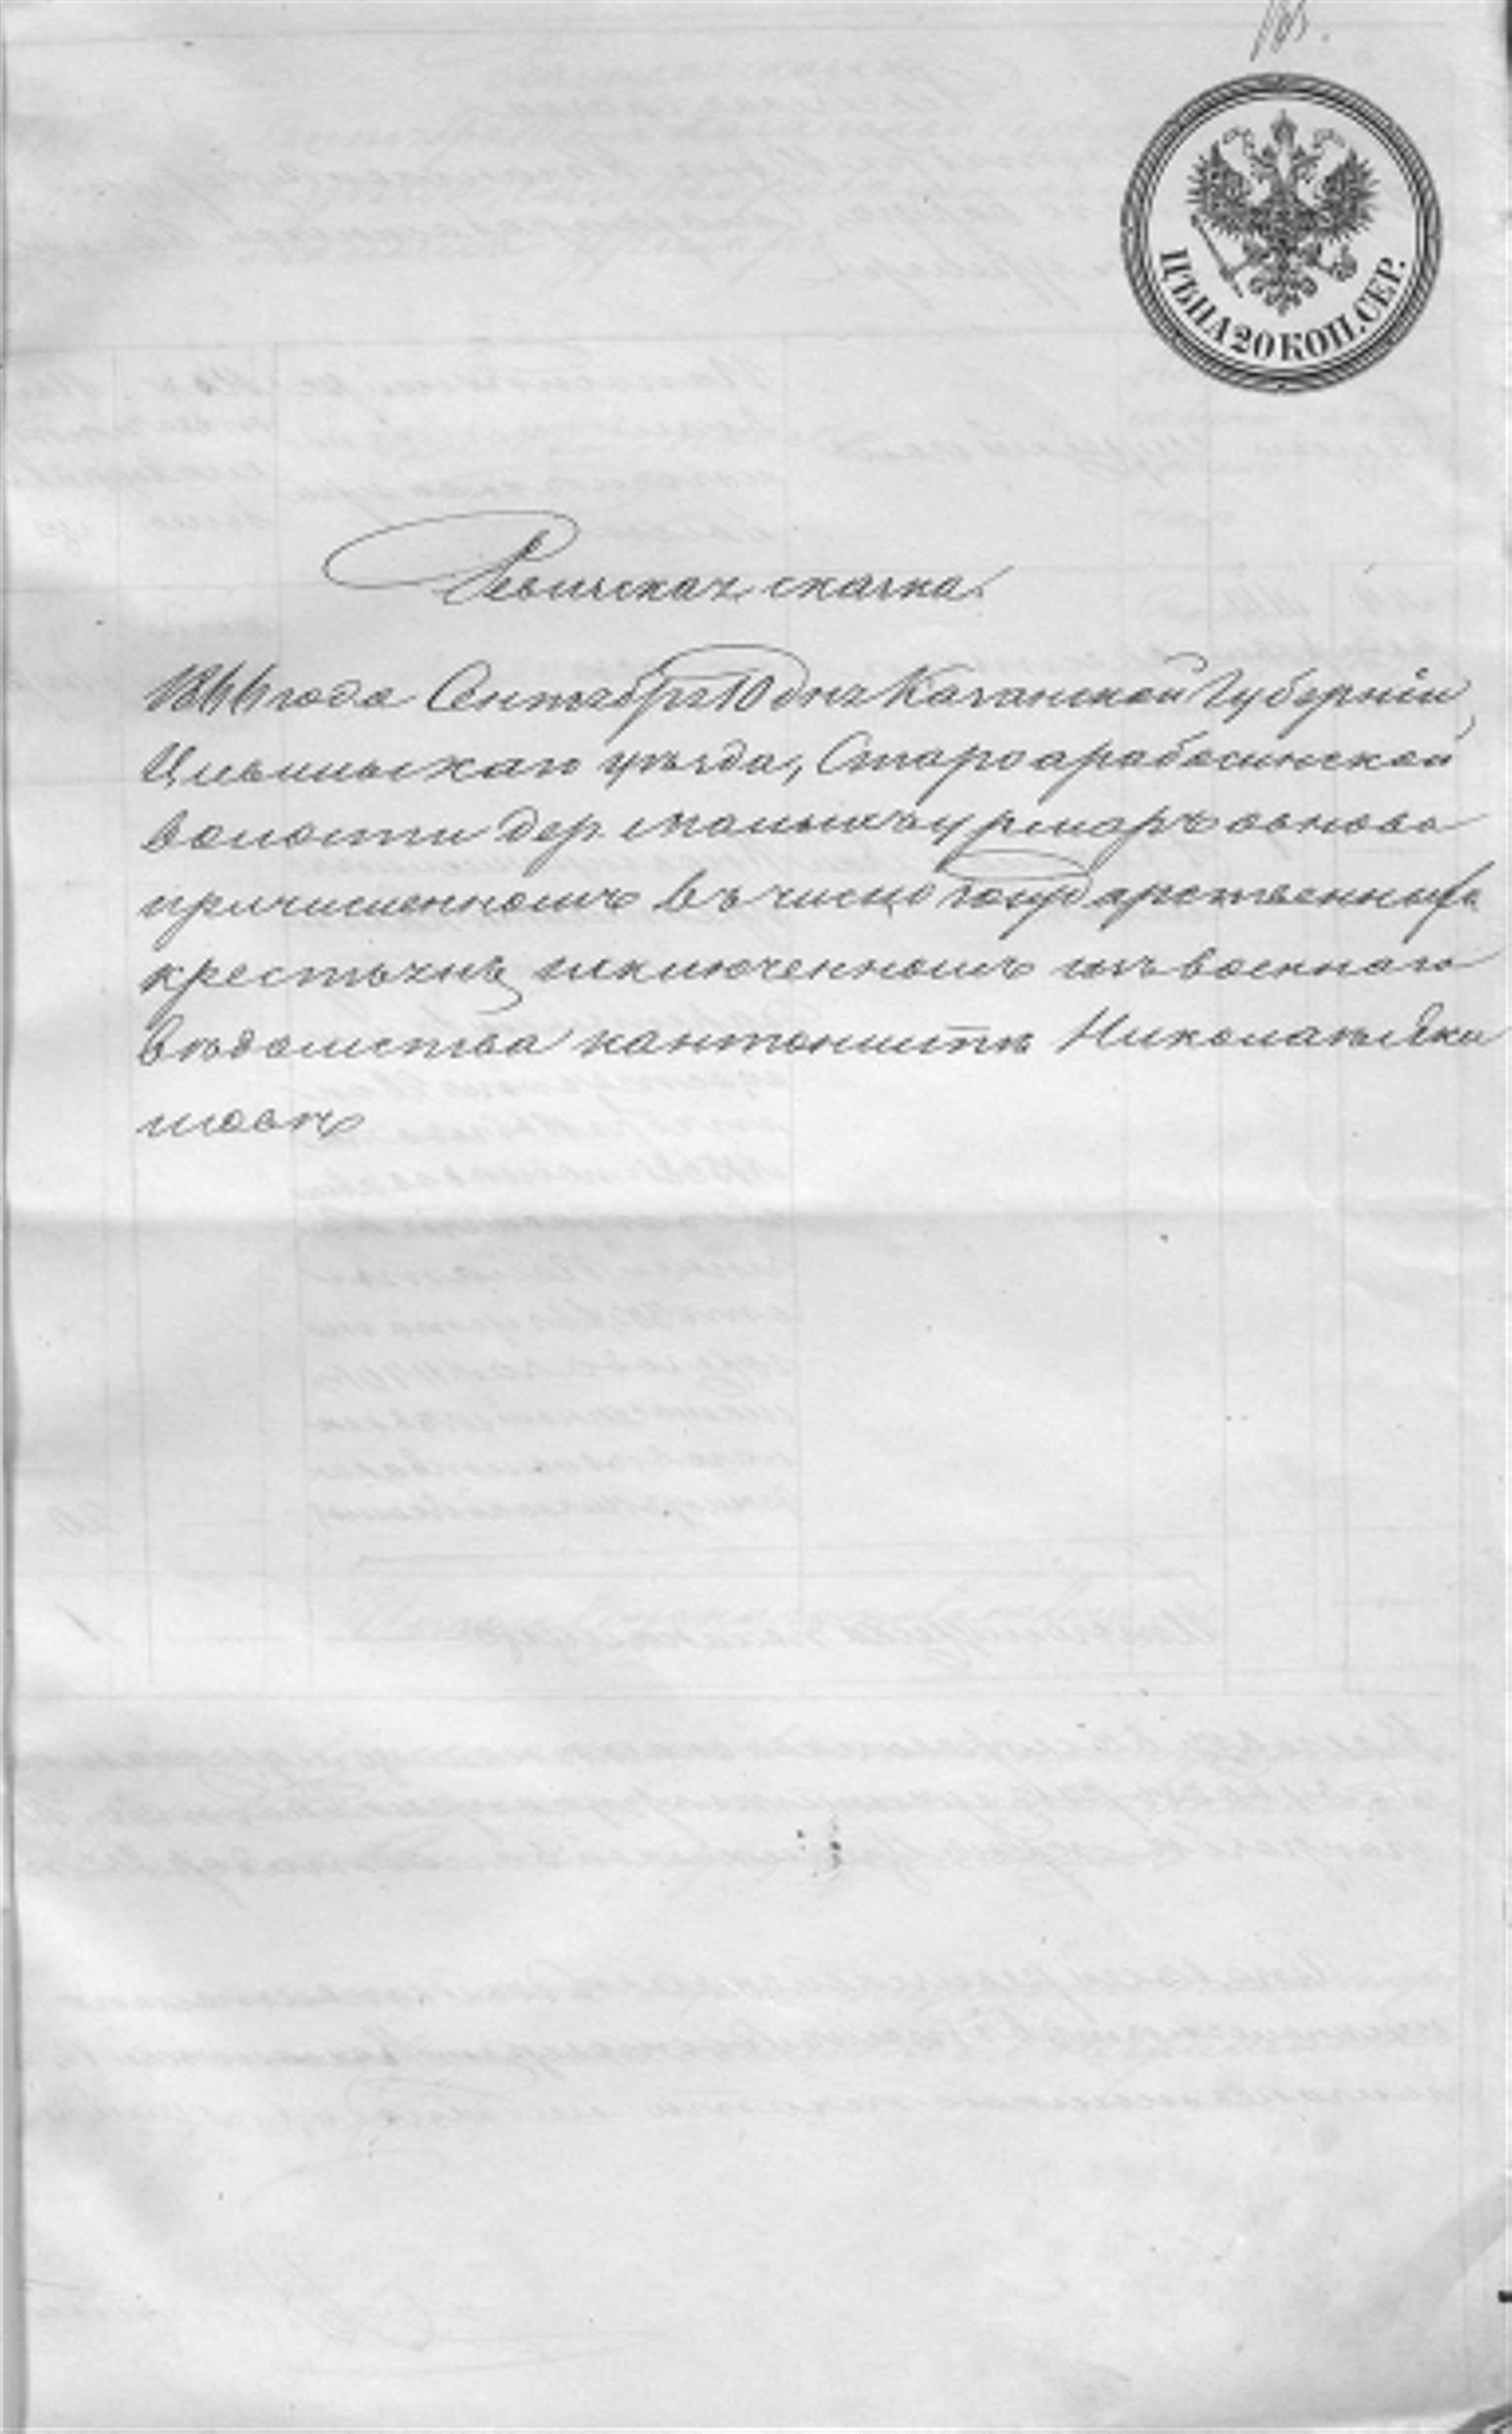 ЦѢНА 20 КОП. СЕР.
Ревизская сказка.
1866 года Сентября 10 дня Казанской Губерніи,
Цывильскаго уѣзда, Староарабосинской
волости дер. Малыхъ Урмаръ о вновь
причисленномъ въ число государственныхъ
крестьянъ исключенномъ изъ военнаго
вѣдомства кантонистѣ Николаѣ Яки
мовѣ